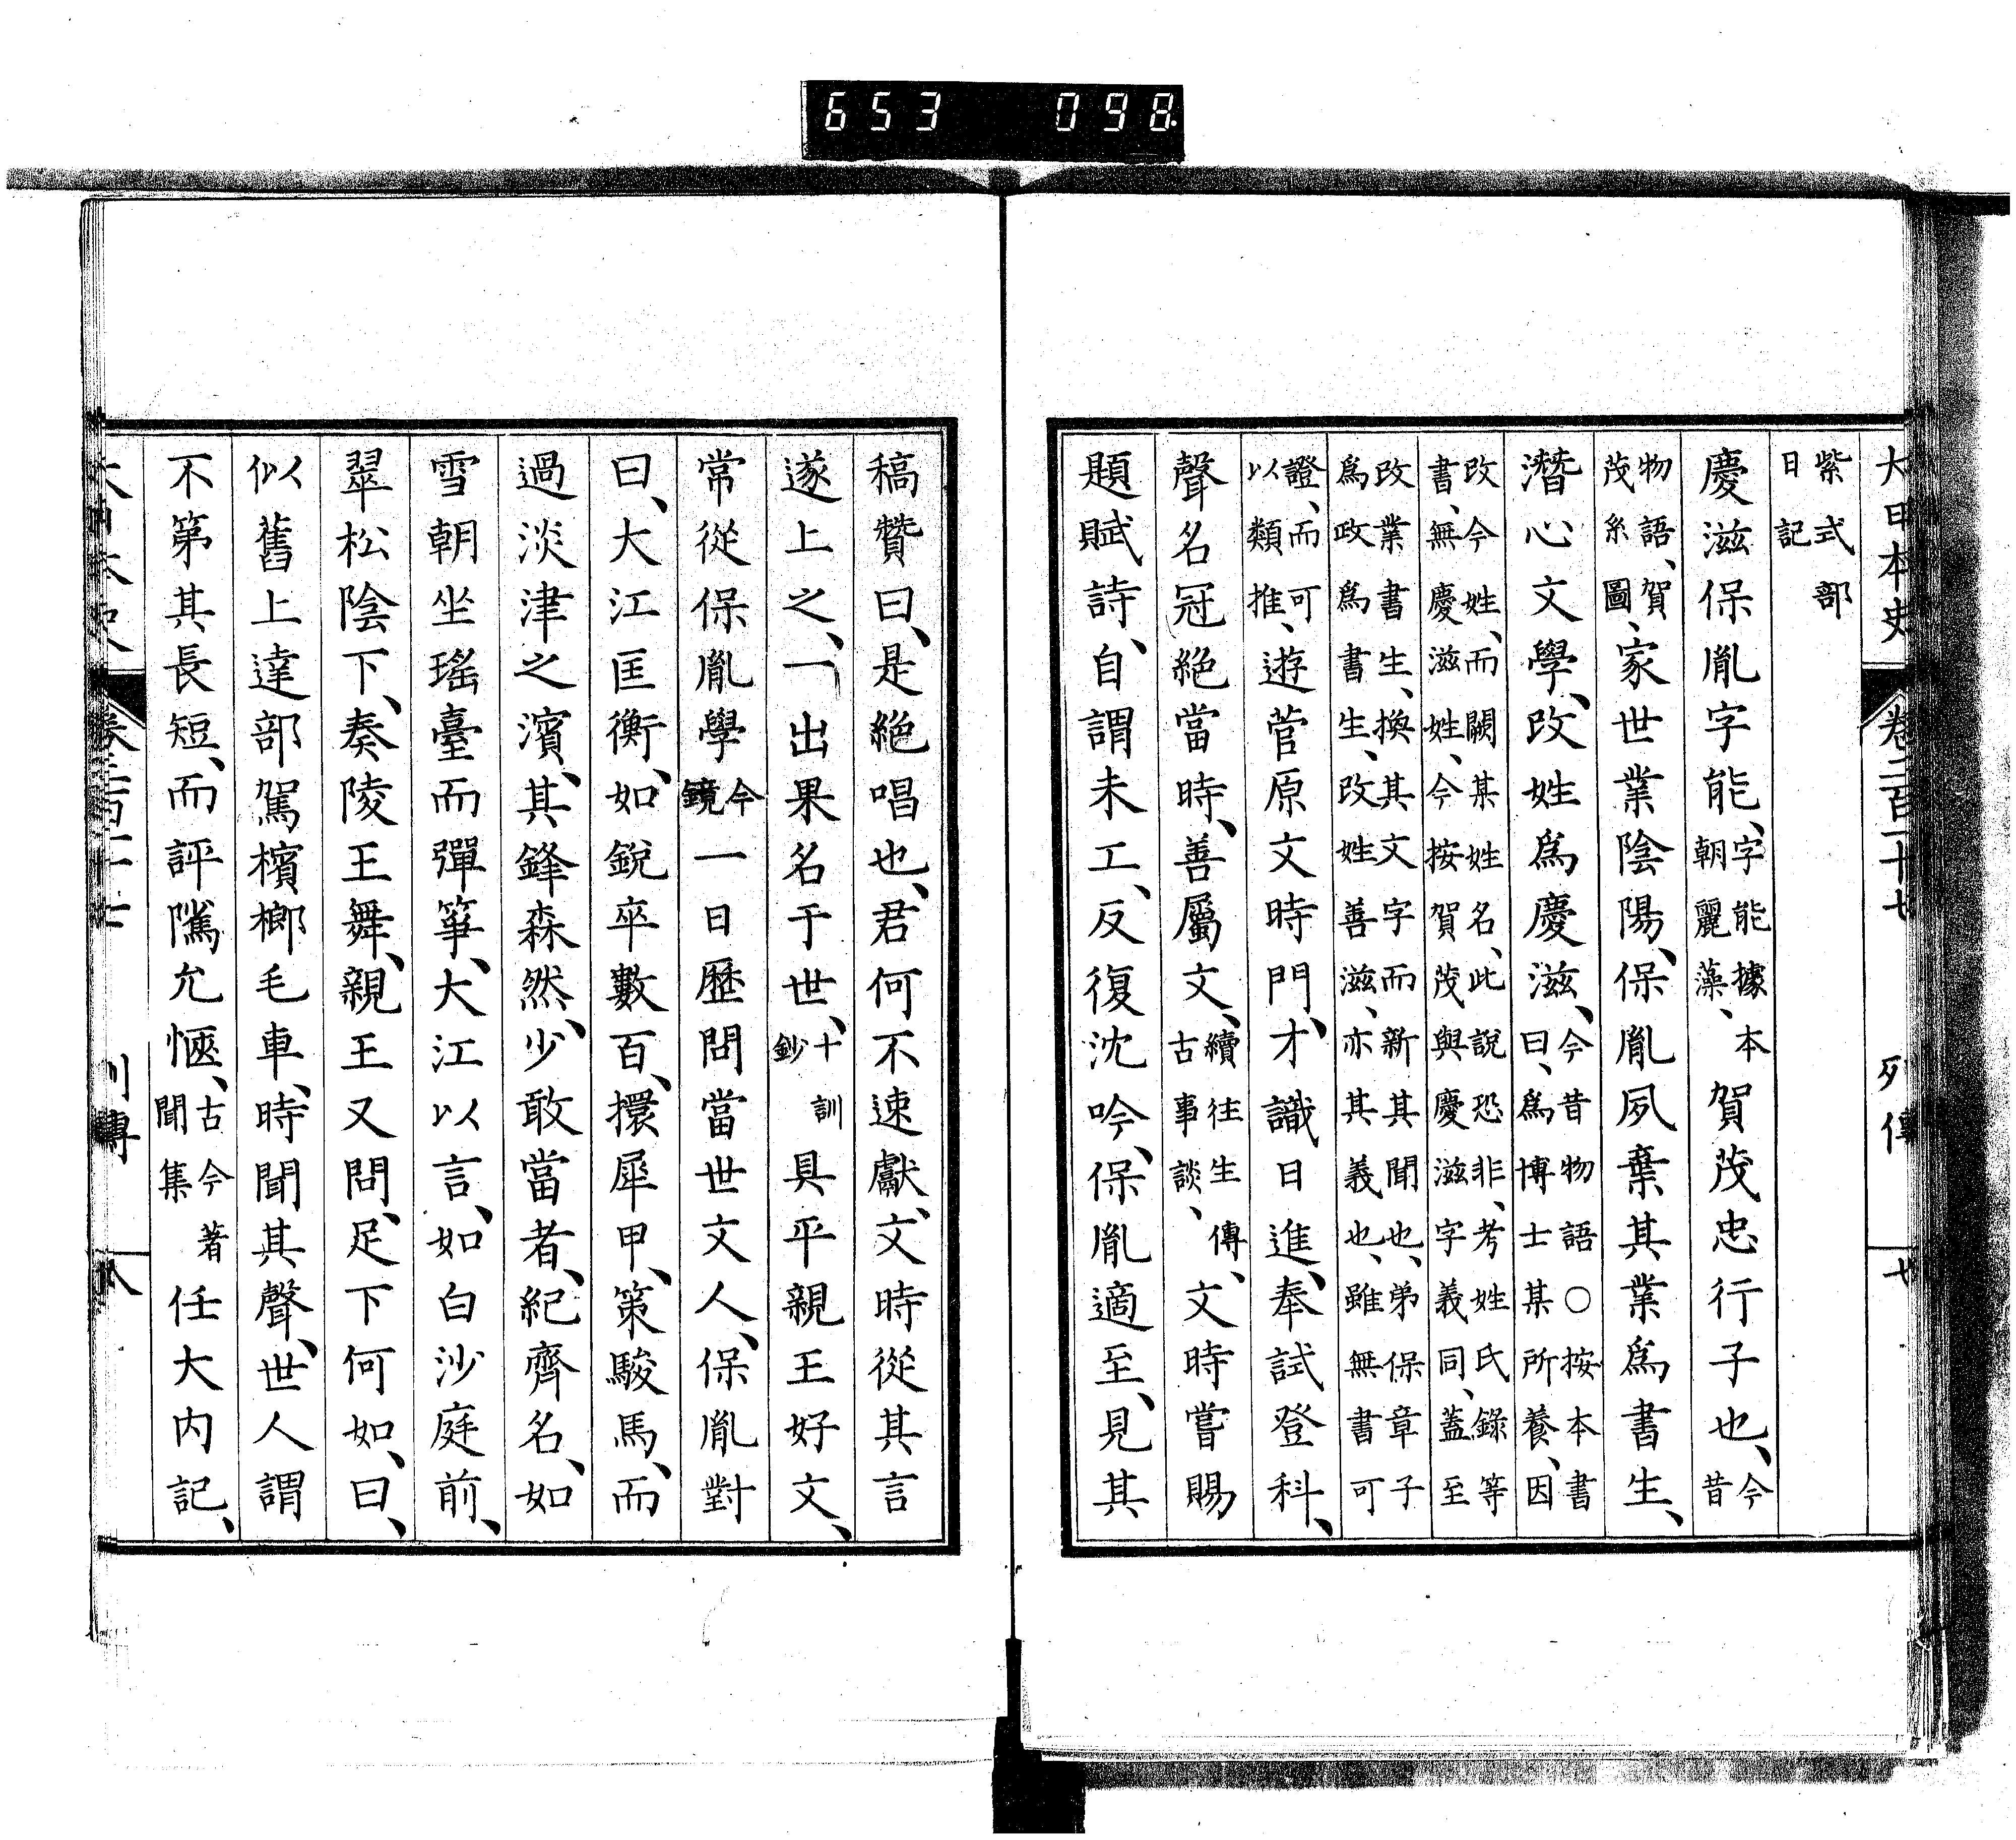 653 098
大日本史 卷二百十七 列傳 七
紫式部日記
慶滋保胤字能、字能據本朝麗藻、賀茂忠行子也、今昔
物語、賀茂系圖、家世業陰陽、保胤夙棄其業爲書生、
潛心文學、改姓爲慶滋、今昔物語○按本書曰、爲博士某所養、因
改今姓、而闕某姓名、此說恐非、考姓氏錄等書、無慶滋姓、今按賀茂與慶滋字義同、蓋至
改業書生、換其文字而新其聞也、弟保章子爲政爲書生、改姓善滋、亦其義也、雖無書可
證、而可以類推、遊菅原文時門、才識日進、奉試登科、
聲名冠絕當時、善屬文、續往生傳、古事談、文時嘗賜
題賦詩、自謂未工、反復沈吟、保胤適至、見其
稿贊曰、是絕唱也、君何不速獻、文時從其言
遂上之、一出果名于世、十訓鈔具平親王好文、
常從保胤學今鏡一日歷問當世文人、保胤對
曰、大江匡衡、如銳卒數百、擐犀甲、策駿馬、而
過淡津之濱、其鋒森然、少敢當者、紀齊名、如
雪朝坐瑤臺而彈箏、大江以言、如白沙庭前、
翠松陰下、奏陵王舞、親王又問、足下何如、曰、
似舊上達部駕檳榔毛車、時聞其聲、世人謂
不第其長短、而評隲允愜、古今著聞集任大內記、
大日本史 卷二百十七 列傳 八